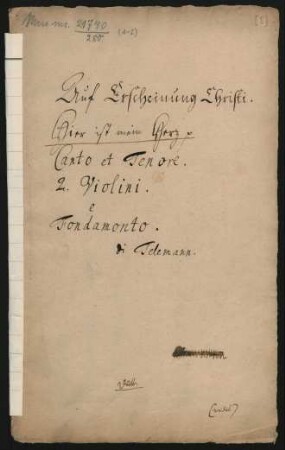 Mus. ms. 21740
285
(1)
Auf Erscheinung Christi.
Hier ist mein Herz
Canto et Tenore.
2. Violini.
e
Fondamento.
di Telemann.